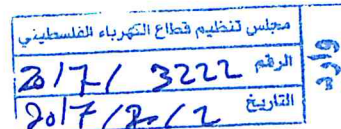 مجلس تنظيم قطاع الكهرباء الفلسطيني
وارد
الرقم 2017/ 3222
التاريخ 2017/